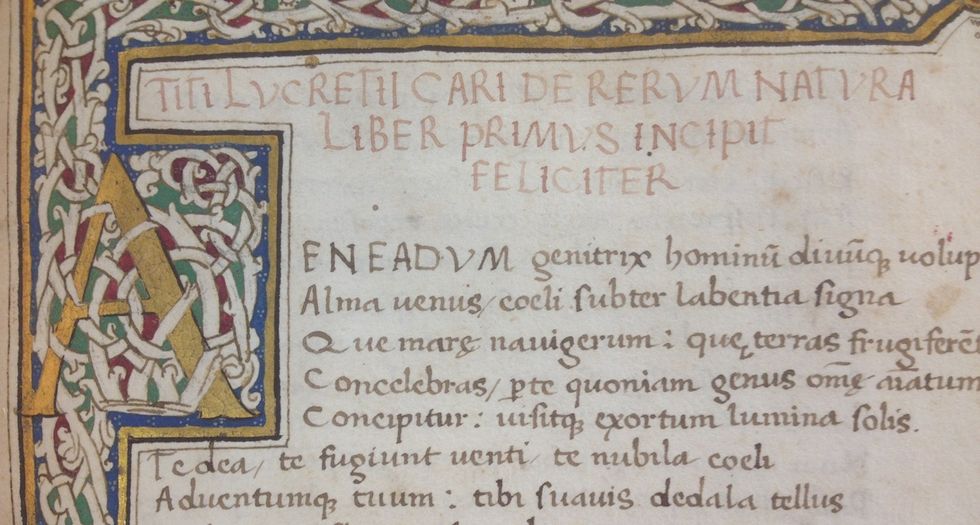 TITI LVCRETII CARI DE RERVM NATVRA
LIBER PRIMVS INCIPIT
FELICITER
AENEADVM genitrix hominū diuūq; uolup
Alma uenus, coeli subter labentia signa
Que marę nauigerum: quę terras frugiferēt
Concelebras, ꝑte quoniam genus omę aīatum
Concipitur: uisitq; exortum lumina solis.
Te dea, te fugiunt uenti, te nubila coeli
Aduentumq; tuum: tibi suauis dedala tellus